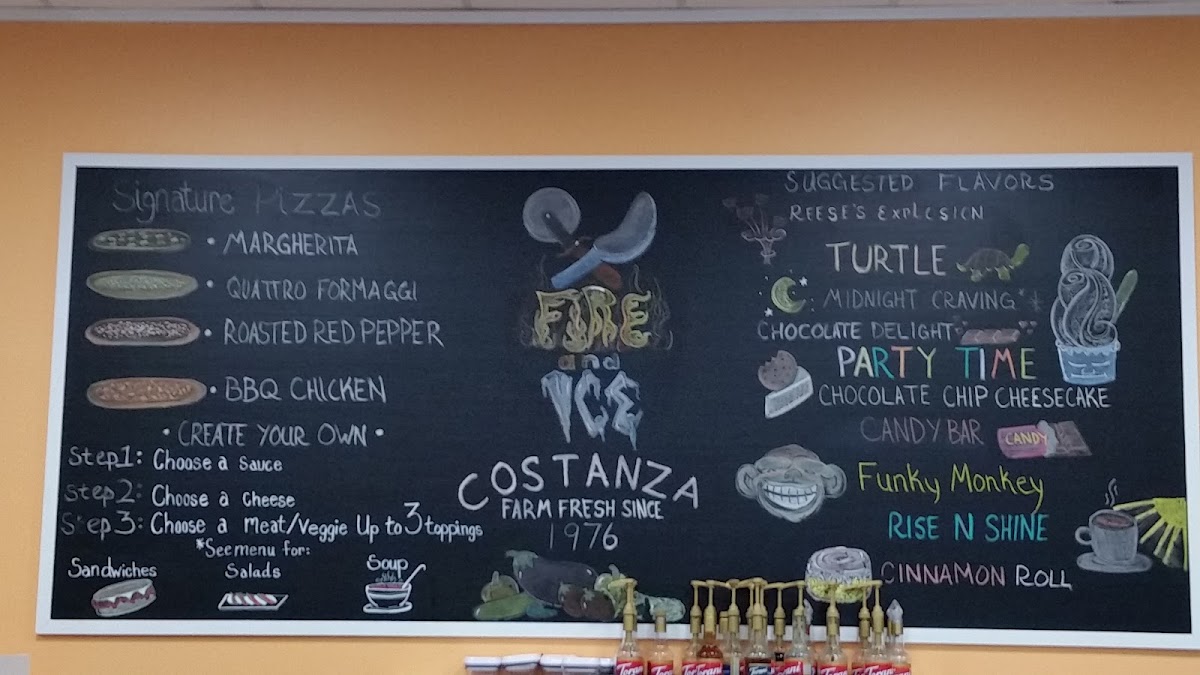 Signature PIZZAS
• MARGHERITA
• QUATTRO FORMAGGI
• ROASTED RED PEPPER
• BBQ CHICKEN
• CREATE YOUR OWN •
Step 1: Choose a sauce
Step 2: Choose a Cheese
Step 3: Choose a meat/Veggie Up to 3 toppings
*See menu for:
Sandwiches
Salads
Soup
FIRE
and
ICE
COSTANZA
FARM FRESH SINCE
1976
SUGGESTED FLAVORS
REESE'S EXPLOSION
TURTLE
MIDNIGHT CRAVING
CHOCOLATE DELIGHT
PARTY TIME
CHOCOLATE CHIP CHEESECAKE
CANDY BAR
CANDY
Funky Monkey
RISE N SHINE
CINNAMON ROLL
Torani